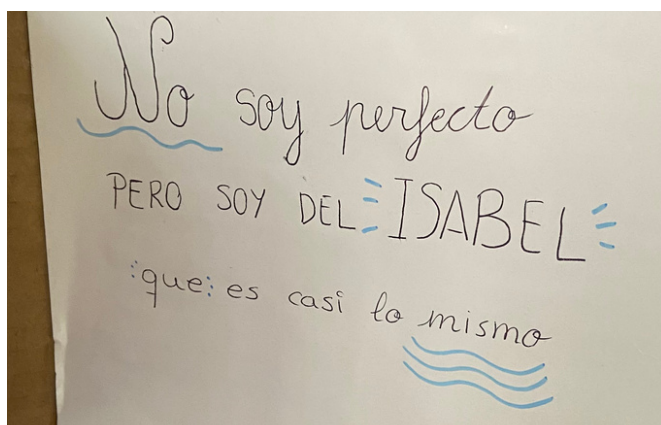 No soy perfecto
PERO SOY DEL ISABEL
que es casi lo mismo